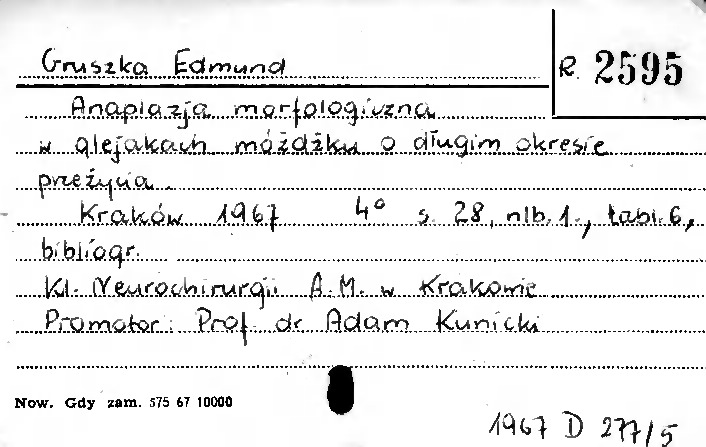 Gruszka Edmund
R. 2595
Anaplazja morfologiczna
w glejakach móżdżku o długim okresie
przeżycia.
Kraków 1967 4° s. 28, nlb. 1., tabl. 6,
bibliogr.
Kl. Neurochirurgii A.M. w Krakowie
Promotor: Prof. dr Adam Kunicki
Now. Gdy zam. 575 67 10000
1967 D 277/5